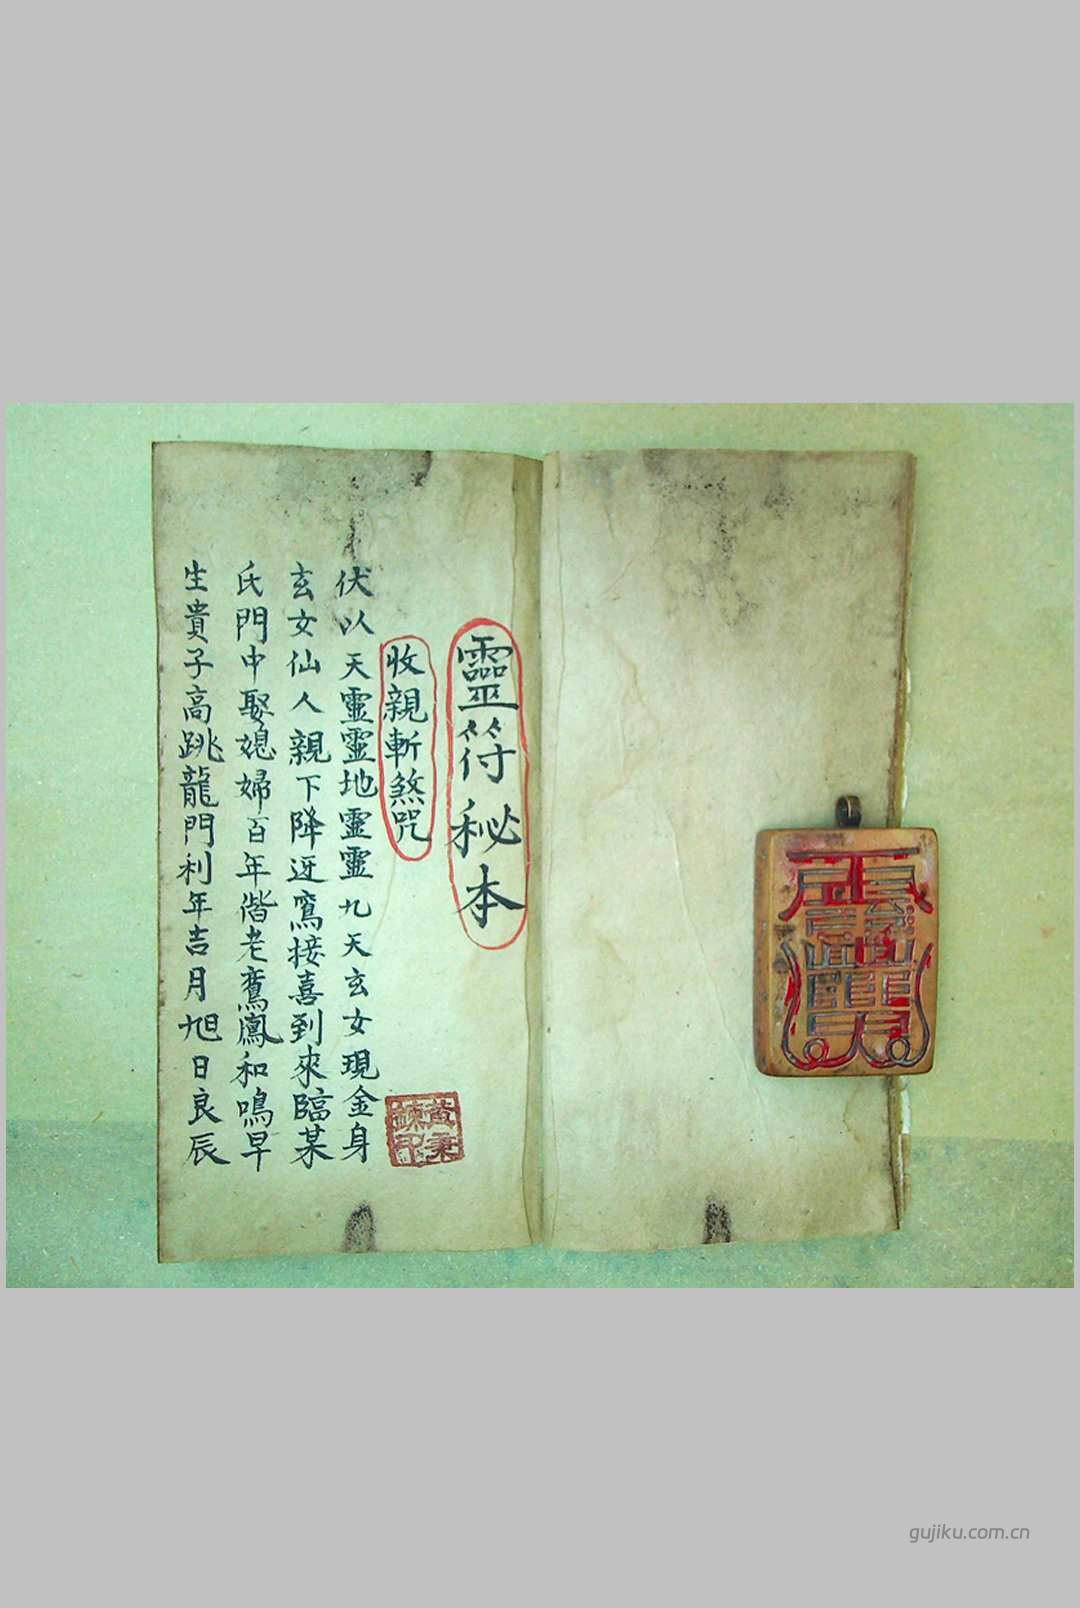 靈符秘本
收親斬煞咒
伏以天靈靈地靈靈九天玄女現金身
玄女仙人親下降迓鸞接喜到來臨某
氏門中娶媳婦百年偕老鸞鳳和鳴早
生貴子高跳龍門利年吉月旭日良辰
gujiku.com.cn